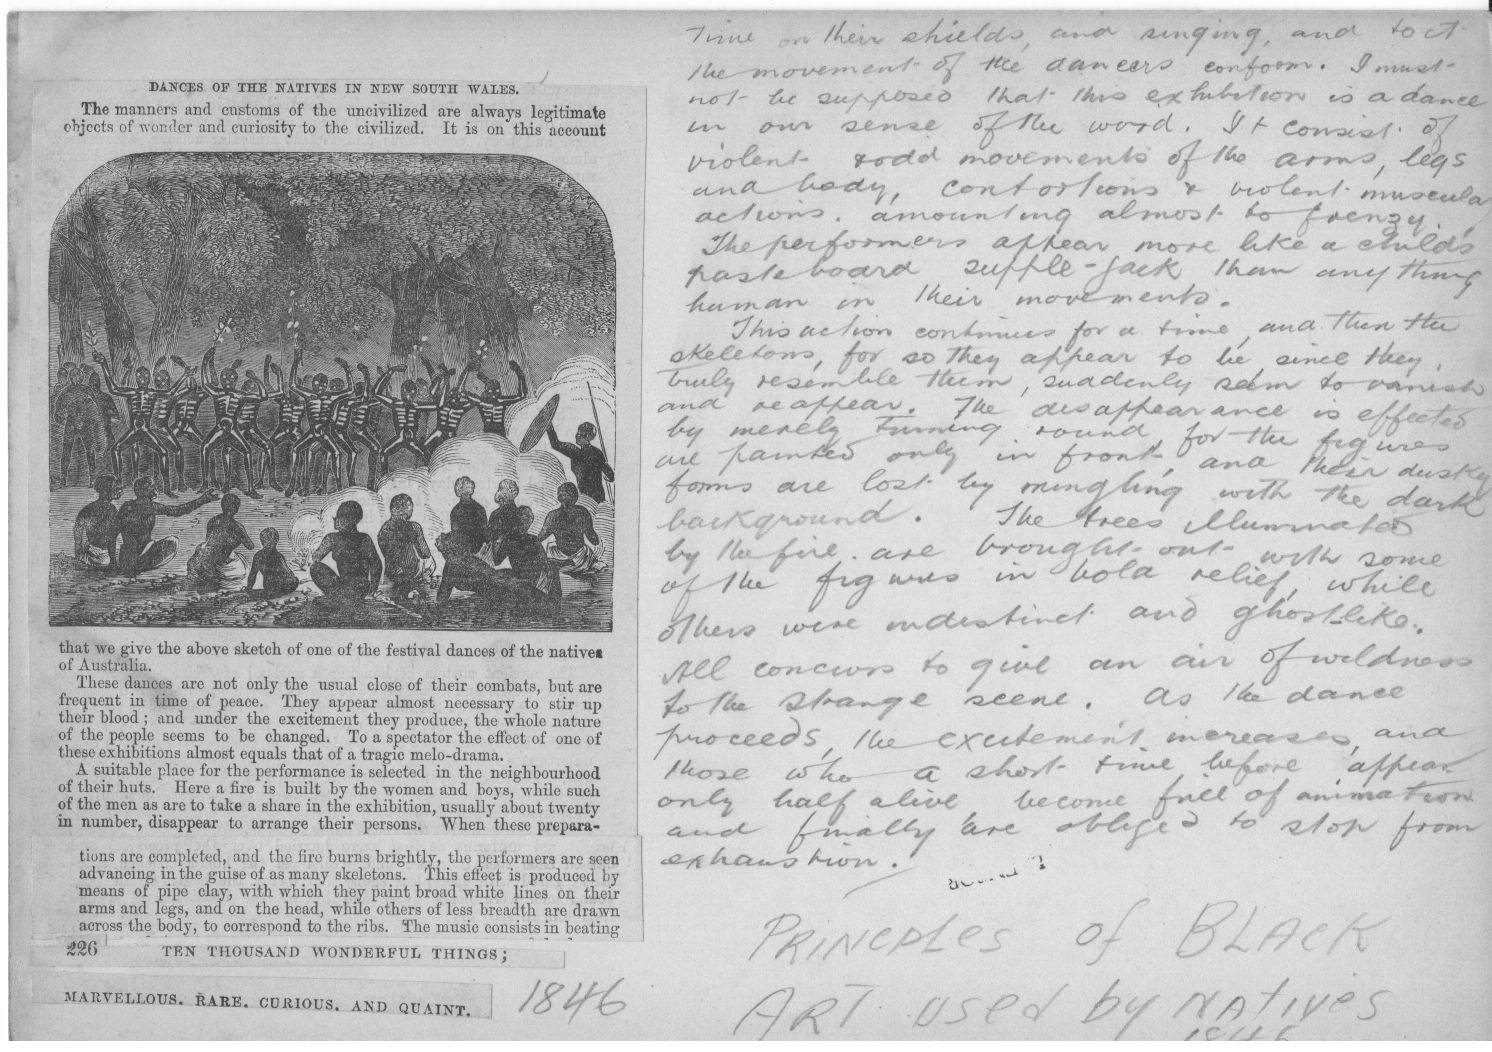 DANCES OF THE NATIVES IN NEW SOUTH WALES.
The manners and customs of the uncivilized are always legitimate
objects of wonder and curiosity to the civilized. It is on this account
that we give the above sketch of one of the festival dances of the natives
of Australia.
These dances are not only the usual close of their combats, but are
frequent in time of peace. They appear almost necessary to stir up
their blood; and under the excitement they produce, the whole nature
of the people seems to be changed. To a spectator the effect of one of
these exhibitions almost equals that of a tragic melo-drama.
A suitable place for the performance is selected in the neighbourhood
of their huts. Here a fire is built by the women and boys, while such
of the men as are to take a share in the exhibition, usually about twenty
in number, disappear to arrange their persons. When these prepara-
tions are completed, and the fire burns brightly, the performers are seen
advancing in the guise of as many skeletons. This effect is produced by
means of pipe clay, with which they paint broad white lines on their
arms and legs, and on the head, while others of less breadth are drawn
across the body, to correspond to the ribs. The music consists in beating
226 TEN THOUSAND WONDERFUL THINGS;
MARVELLOUS. RARE. CURIOUS. AND QUAINT.
1846
Time on their shields, and singing, and to it
the movement of the dancers conform. I must
not be supposed that this exhibition is a dance
in our sense of the word. It consist of
violent & odd movements of the arms, legs
and body, contortions & violent muscular
actions. amounting almost to frenzy.
The performers appear more like a child's
pasteboard supple-jack than any thing
human in their movements.
This action continues for a time, and then the
skeletons, for so they appear to be, since they
truly resemble them, suddenly seem to vanish
and reappear. The disappearance is effected
by merely turning round, for the figures
are painted only in front, and their dusky
forms are lost by mingling with the dark
background. The trees illuminated
by the fire. are brought out with some
of the figures in bold relief, while
others were indistinct and ghost-like.
All concurs to give an air of wildness
to the strange scene. As the dance
proceeds, the excitement increases, and
those who a short time before appear
only half alive become full of animation
and finally are obliged to stop from
exhaustion.
PRINCPLES of BLACK
ART used by NATIVES
1846